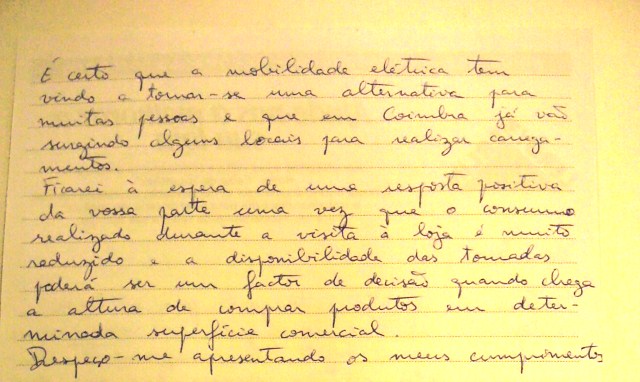 É certo que a mobilidade elétrica tem
vindo a tornar-se uma alternativa para
muitas pessoas e que em Coimbra já vão
surgindo alguns locais para realizar carrega-
mentos.
Ficarei à espera de uma resposta positiva
da vossa parte uma vez que o consumo
realizado durante a visita à loja é muito
reduzido e a disponibilidade das tomadas
poderá ser um factor de decisão quando chega
a altura de comprar produtos em deter-
minada superfície comercial.
Despeço-me apresentando os meus cumprimentos